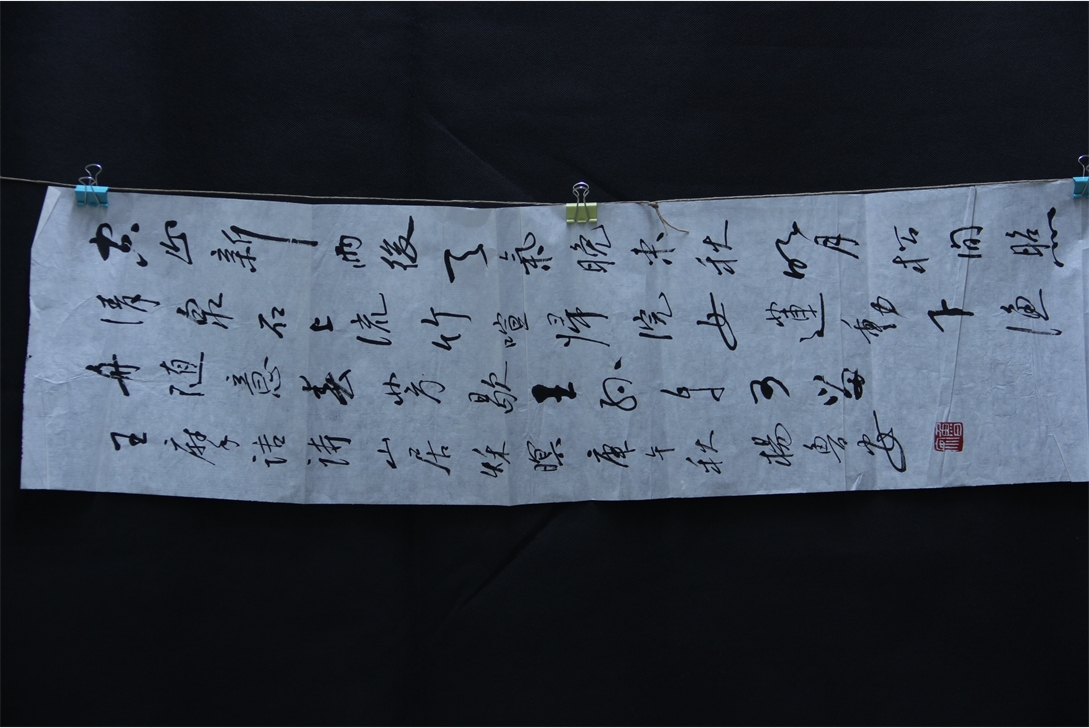 空山新雨後天氣晚來秋明月松間照
清泉石上流竹喧歸浣女蓮動下漁
舟隨意春芳歇王孫自可留
王摩詰詩山居秋暝庚午秋楊魯安